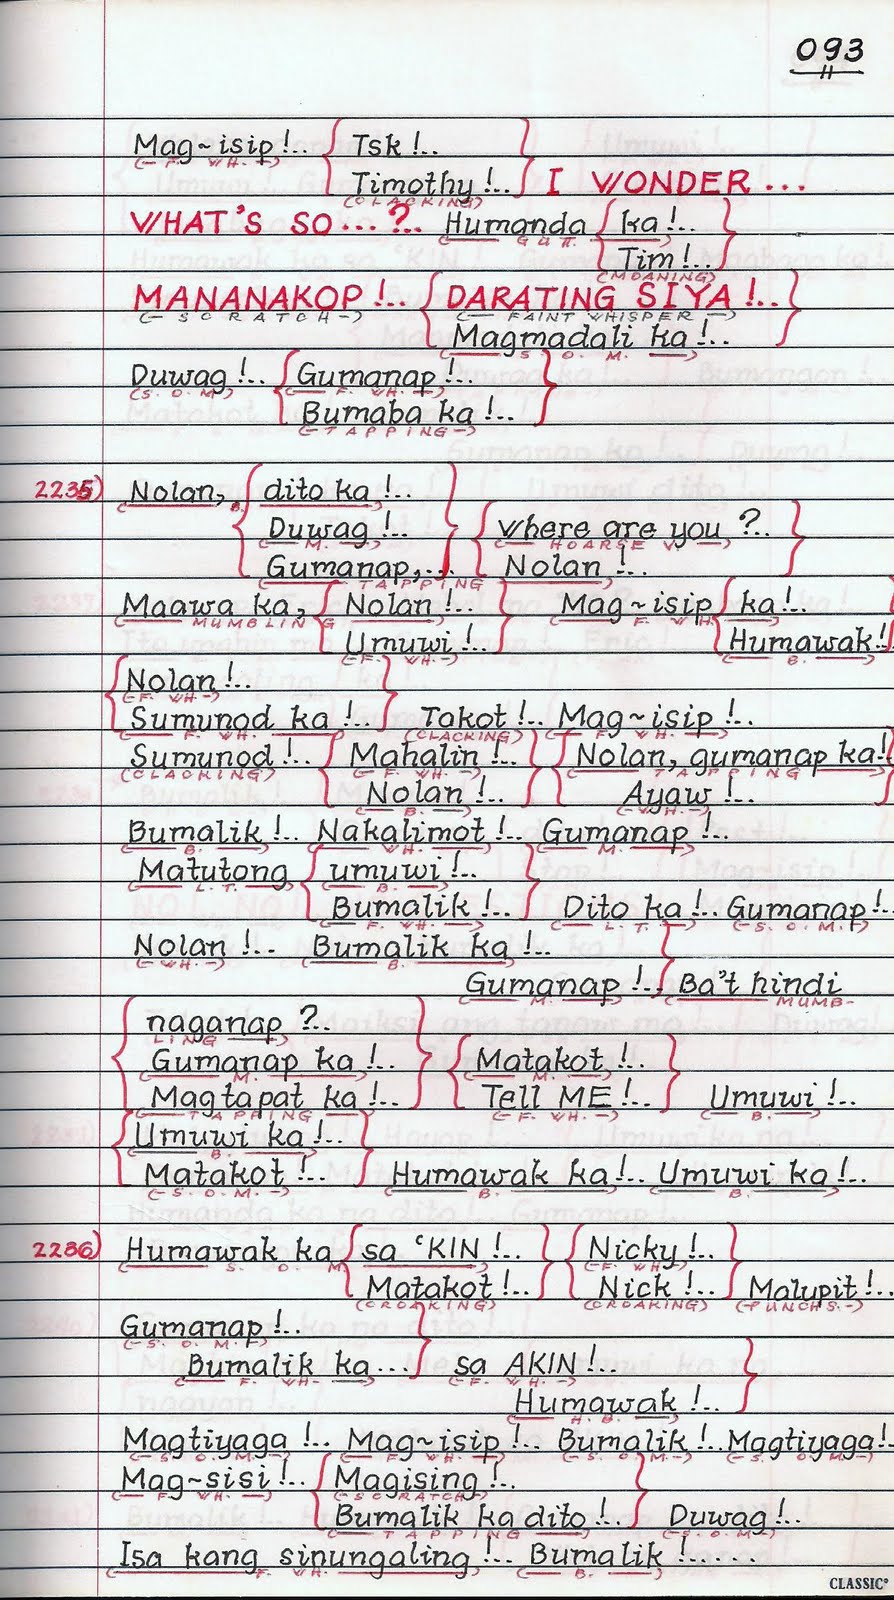 093
Mag~isip!.. { Tsk!.. }
(- F. WH. -)
Timothy!.. I WONDER...
(CLACKING)
WHAT'S SO...?.. Humanda { ka!.. }
GUT.
Tim!..
(MOANING)
MANANAKOP!.. { DARATING SIYA!.. }
(- SCRATCH -) (- FAINT WHISPER -)
Magmadali ka!..
S. O. M.
Duwag!.. { Gumanap!.. }
(S. O. M) (- F. WH. -)
Bumaba ka!..
(- TAPPING -)
2235) Nolan, { dito ka!.. }
B.
Duwag!.. { where are you?.. }
(- M. -) (- HOARSE V. -)
Gumanap,... Nolan!..
TAPPING
Maawa ka, { Nolan!.. } Mag~isip { ka!..
MUMBLING F. WH.
Umuwi!.. Humawak!..
(- F. WH. -) B.
{ Nolan!.. }
(- F. WH. -)
Sumunod ka!.. Takot!.. Mag~isip!..
F. WH. (CLACKING) F. WH.
Sumunod!.. { Mahalin!.. } { Nolan, gumanap ka!..
(CLACKING) (- F. WH. -) TAPPING
Nolan!.. Ayaw!..
(- B. -) (- WH. -)
Bumalik!.. Nakalimot!.. Gumanap!..
B. WH. M.
Matutong { umuwi!.. }
L. T. B.
Bumalik!.. Dito ka!.. Gumanap!..
(- F. WH. -) (- L. T. -) (- S. O. M. -)
Nolan!.. Bumalik ka!..
(- WH. -) B.
Gumanap!.., } Ba't hindi
M. MUMB-
{ naganap?.. }
LING
Gumanap ka!.. { Matakot!.. }
M. M.
Magtapat ka!.. Tell ME!.. Umuwi!..
TAPPING (- F. WH. -) B.
{ Umuwi ka!.. }
B.
Matakot!.. Humawak ka!.. Umuwi ka!..
(- S. O. M. -) B. B.
2236) Humawak ka { sa 'KIN!.. } { Nicky!.. }
S. O. M. (- F. WH -)
Matakot!.. Nick!.. Malupit!..
(CROAKING) (CROAKING) (- PUNCHS. -)
Gumanap!..
(- S. O. M. -)
Bumalik ka... } sa AKIN!..
F. WH. (- F. WH. -)
Humawak!..
H. B.
Magtiyaga!.. Mag~isip!.. Bumalik!.. Magtiyaga!..
(- S. O. M. -) F. WH. (- S. O. M. -) (- S. O. M. -)
Mag~sisi!.. { Magising!.. }
F. WH. (- SCRATCH -)
Bumalik ka dito!.. Duwag!..
TAPPING (- S. O. M. -)
Isa kang sinungaling!.. Bumalik!.....
F. WH. B.
CLASSIC®